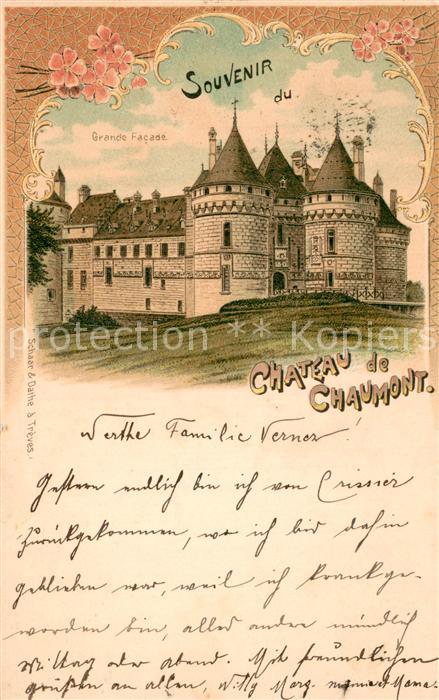 SOUVENIR
du
Grande Façade.
CHATEAU de
CHAUMONT.
Schaar & Dathe à Trèves.
bartko ** Kopiersc
Werthe Familie Verner!
Gestern endlich bin ich von Crissier
zurückgekommen, wo ich bis dahin
geblieben war, weil ich krankge-
worden bin, alles andre mündlich
Mittag oder abend. Mit freundlichen
grüßen an allen, Mama